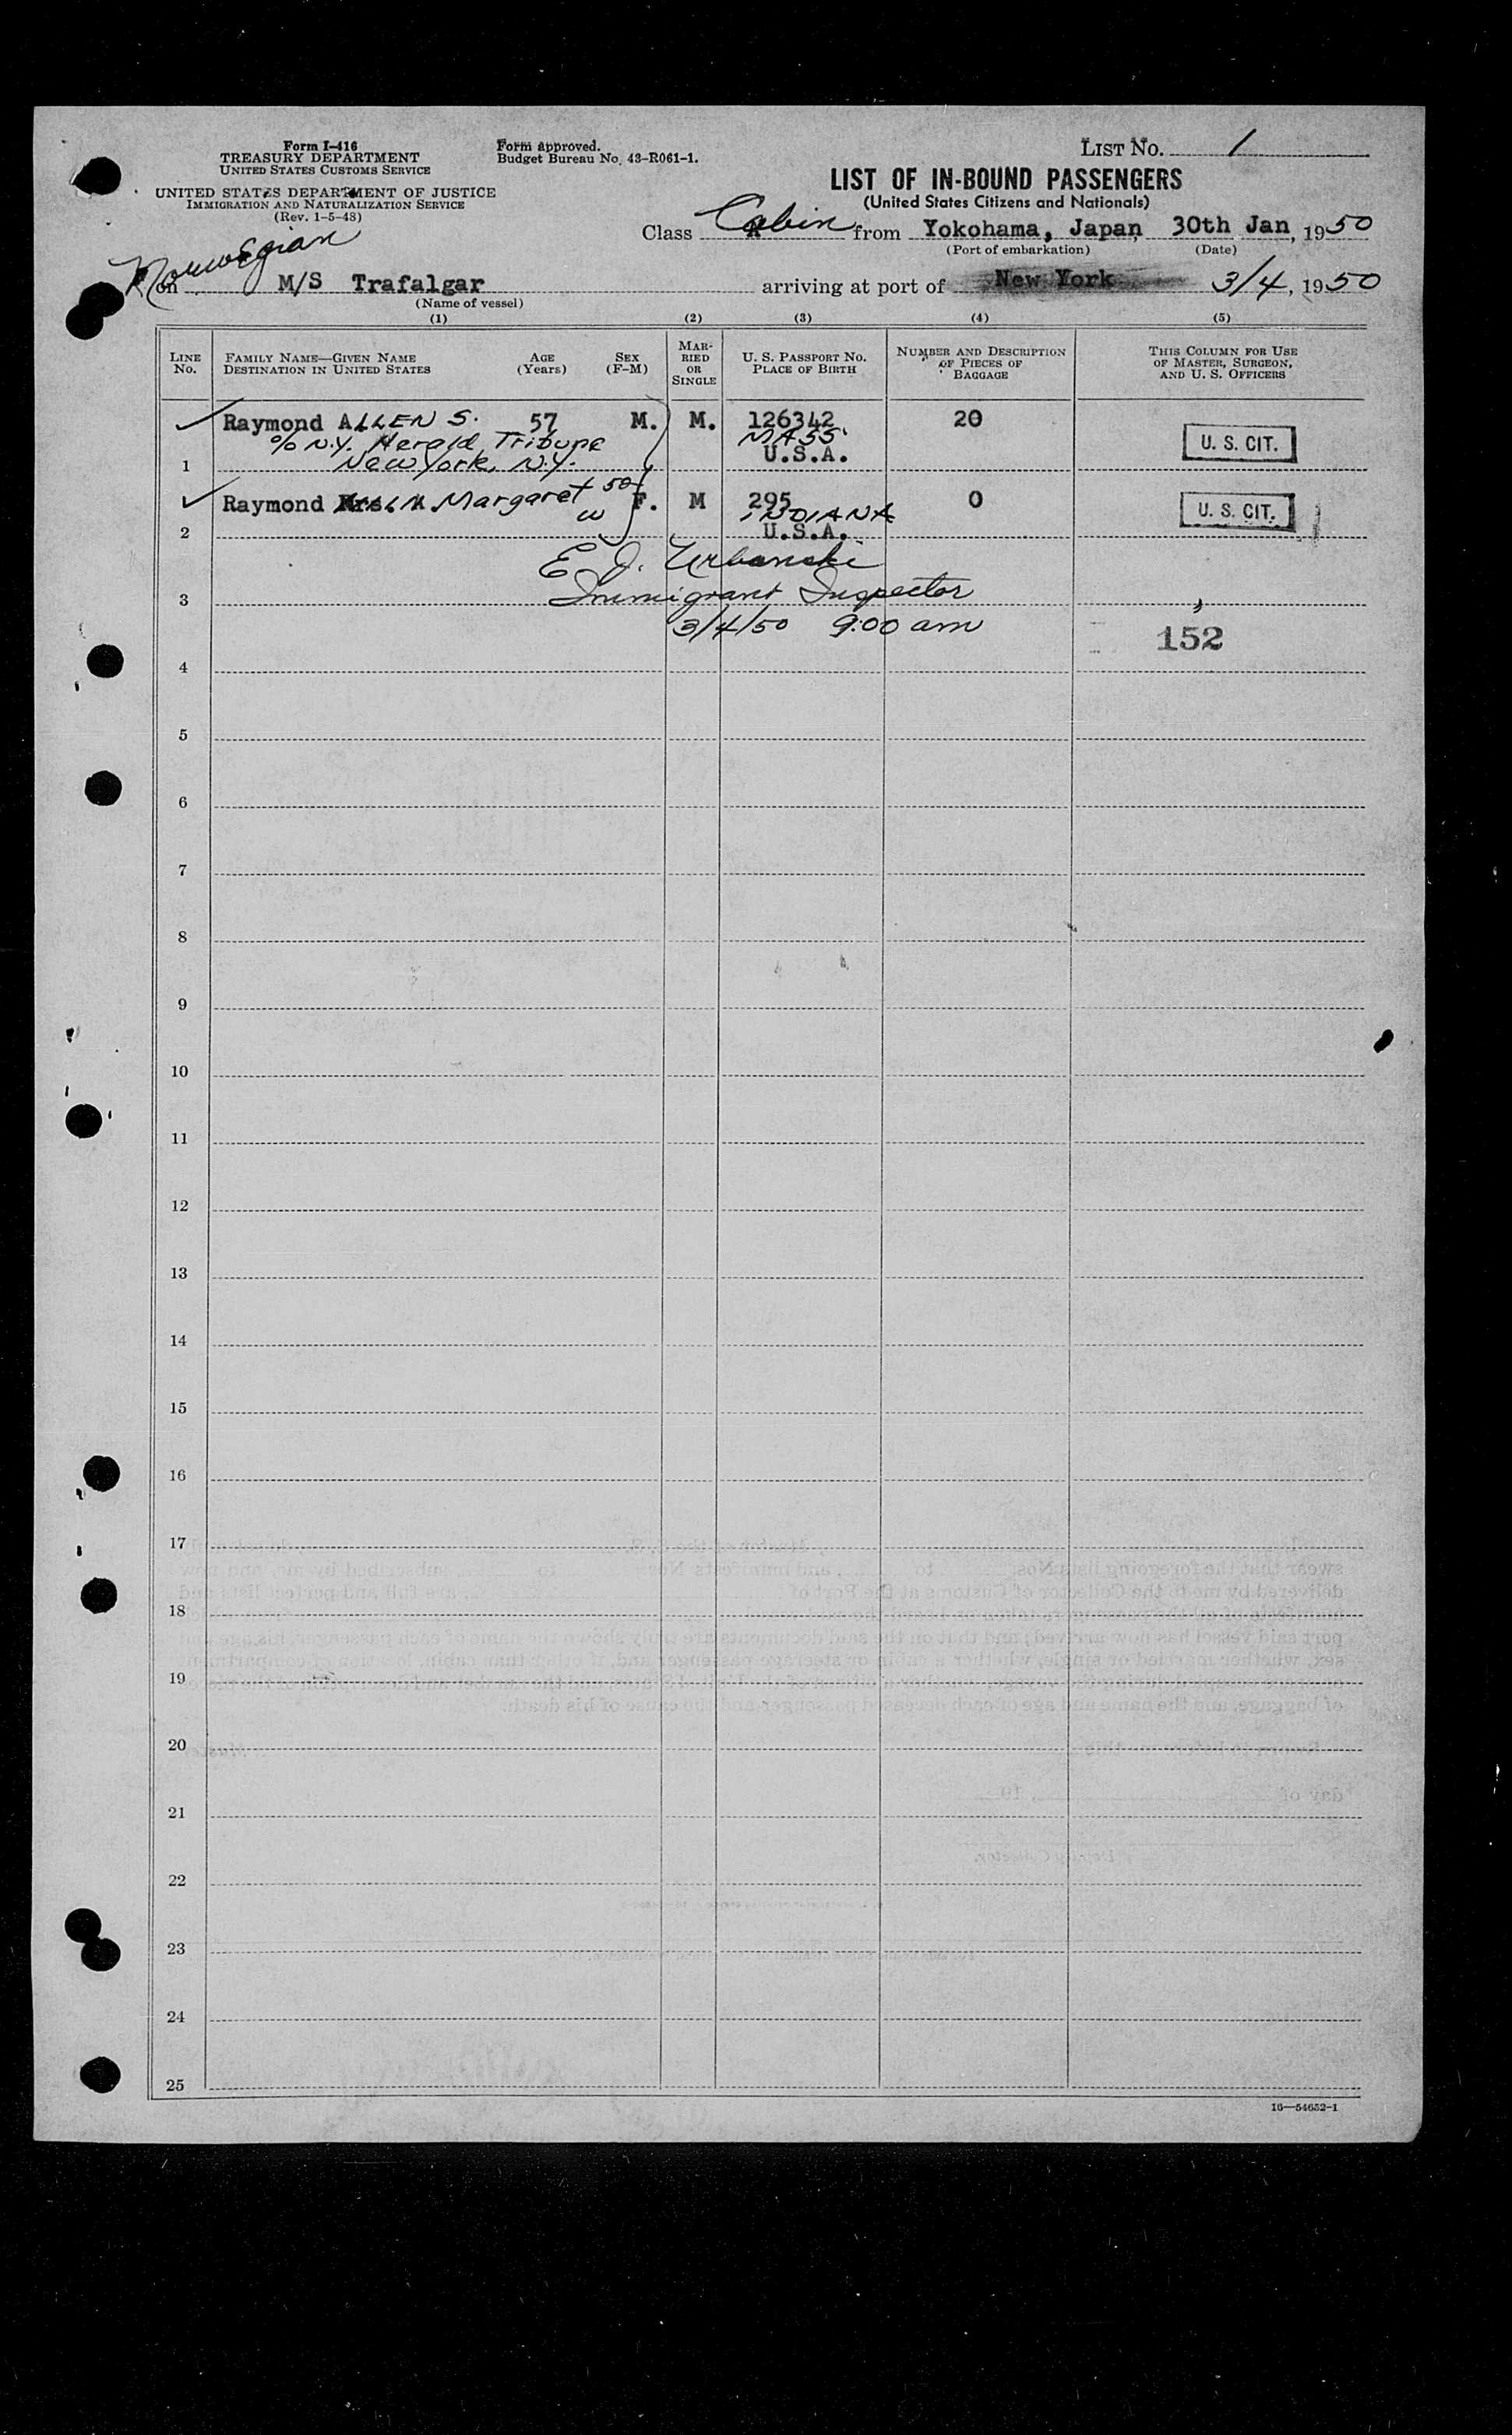 Form I-416
TREASURY DEPARTMENT
UNITED STATES CUSTOMS SERVICE
UNITED STATES DEPARTMENT OF JUSTICE
IMMIGRATION AND NATURALIZATION SERVICE
(Rev. 1-5-48)
Form approved.
Budget Bureau No. 43-R061-1.
LIST NO. 1
LIST OF IN-BOUND PASSENGERS
(United States Citizens and Nationals)
Class Cabin from Yokohama, Japan, 30th Jan, 1950
(Port of embarkation) (Date)
Norwegian
on M/S Trafalgar arriving at port of New York 3/4, 1950
(Name of vessel)
(1) (2) (3) (4) (5)
LINE NO.
FAMILY NAME—GIVEN NAME
DESTINATION IN UNITED STATES
AGE
(Years)
SEX
(F-M)
MAR-
RIED
OR
SINGLE
U. S. PASSPORT NO.
PLACE OF BIRTH
NUMBER AND DESCRIPTION
OF PIECES OF
BAGGAGE
THIS COLUMN FOR USE
OF MASTER, SURGEON,
AND U. S. OFFICERS
Raymond ALLEN S. 57 M. M. 126342 20
c/o N.Y. Herald Tribune MASS. U. S. CIT.
1 New York, N.Y. U.S.A.
Raymond Mrs. Margaret 50 F. M 295 0
w INDIANA U. S. CIT.
2 U.S.A.
E J. Urbanski
3 Immigrant Inspector
3/4/50 9:00 am 152
4
5
6
7
8
9
10
11
12
13
14
15
16
17
18
19
20
21
22
23
24
25
16—54652-1